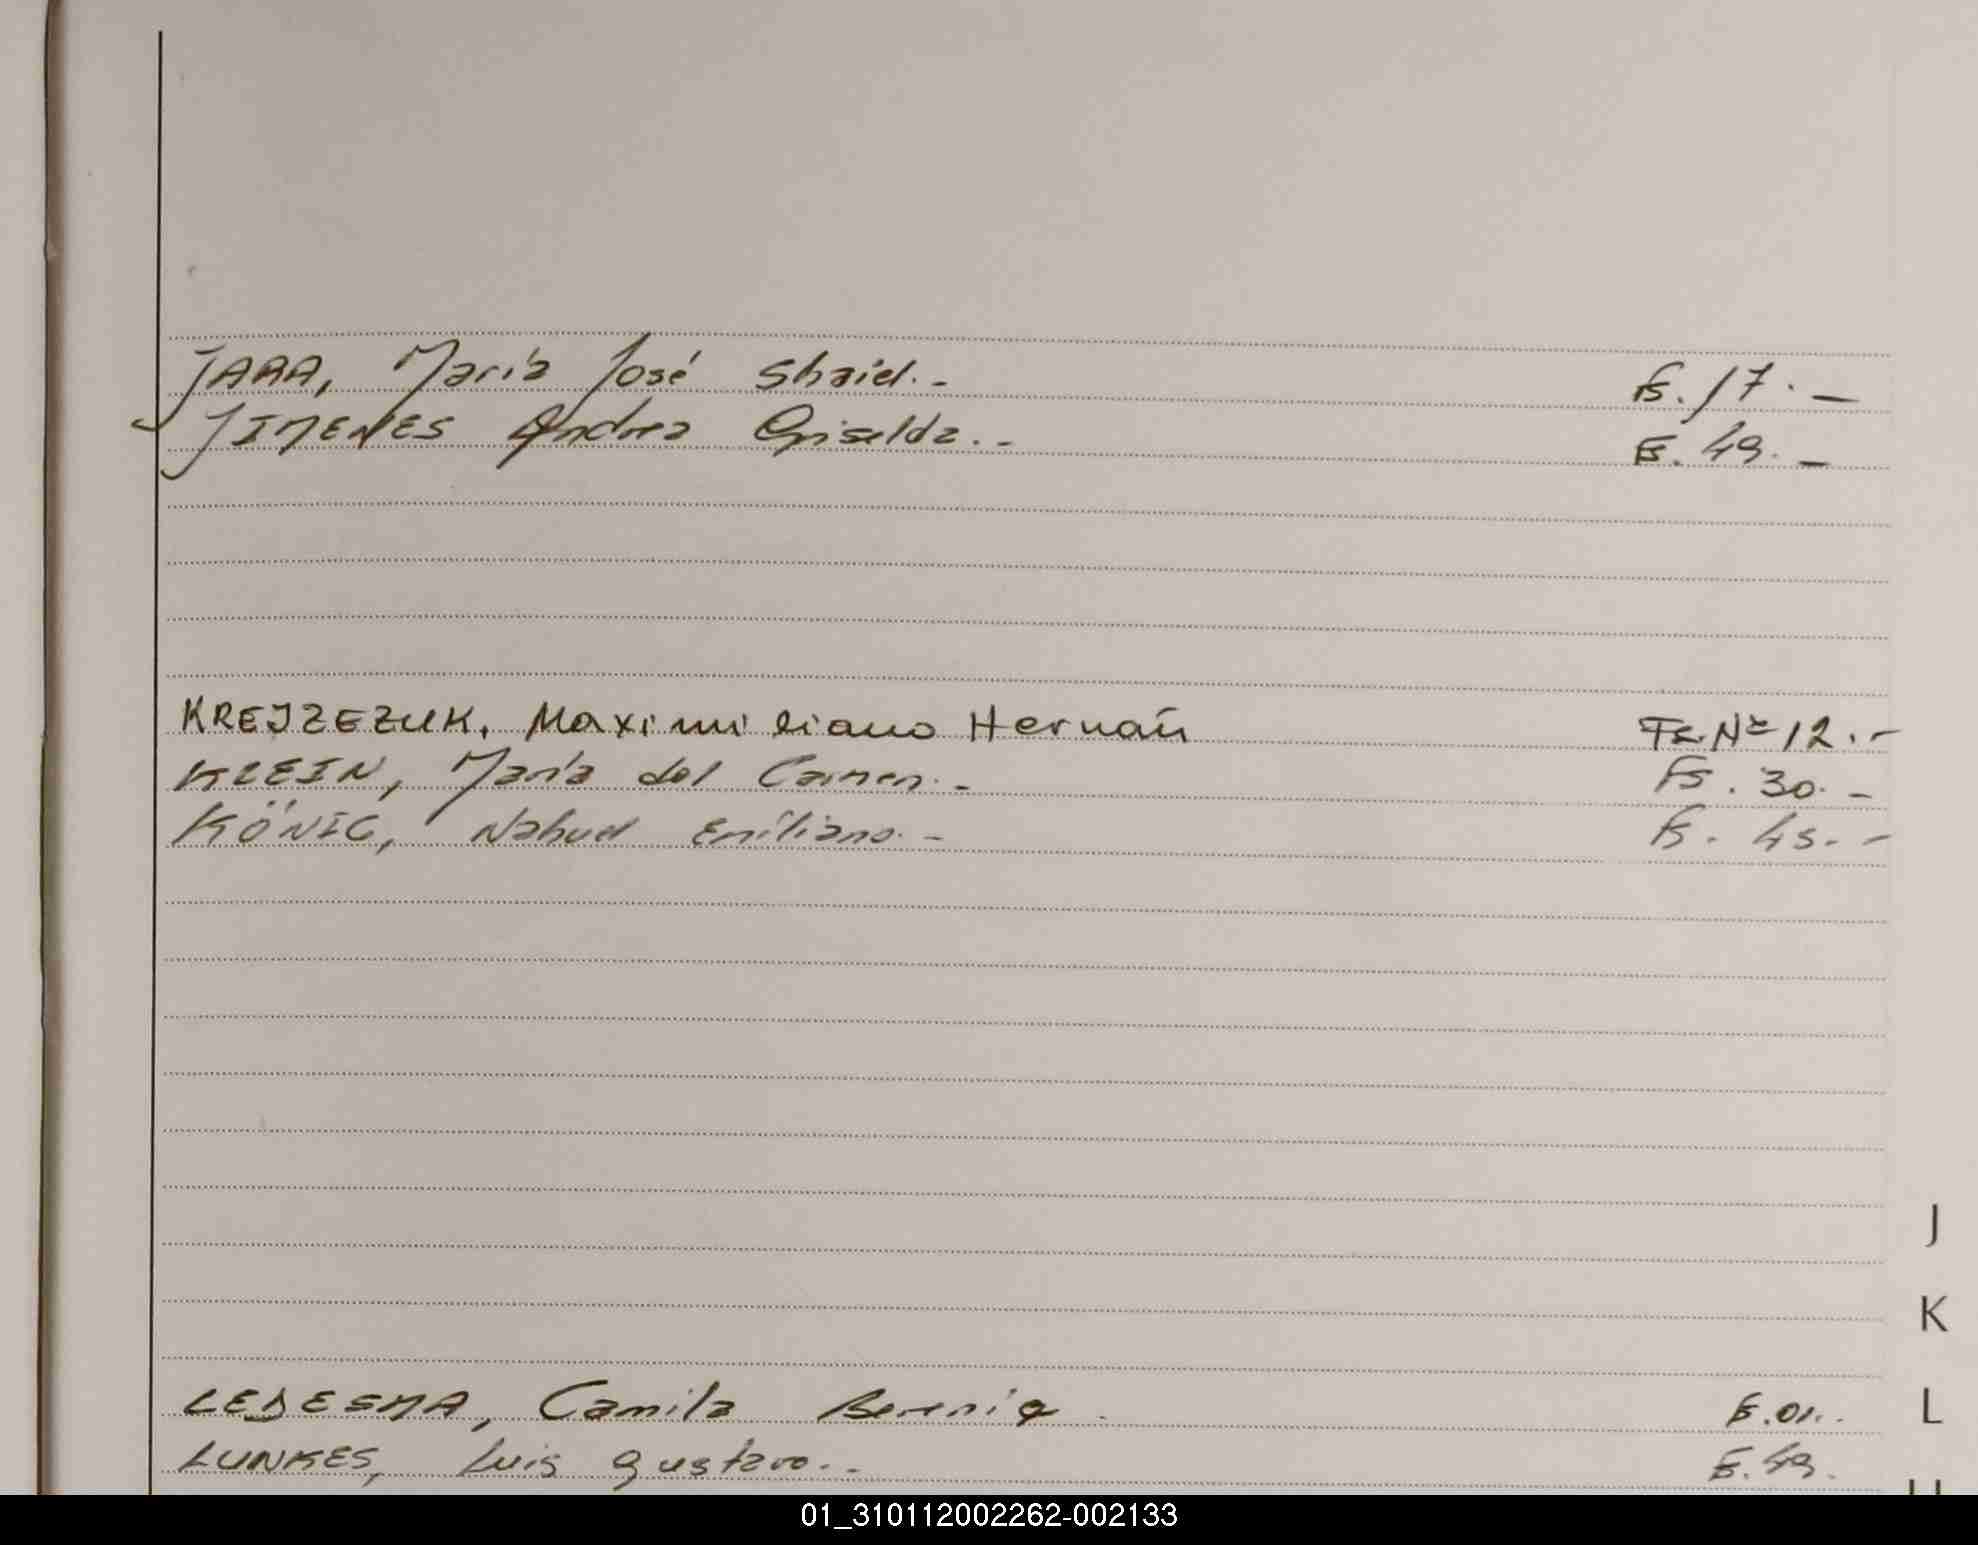 JARA, María José Shaiel.- Fs. 17.-
JIMENES Andrea Griselda.- Fs. 49.-
KREJZEZUK, Maximiliano Hernán Fs. Nº 12.-
KLEIN, María del Carmen.- Fs. 30.-
KÖNIG, Nahuel Emiliano.- Fs. 45.-
J
K
LEDESMA, Camila Berenice. Fs. 01.
L
LUNKES, Luis Gustavo.- Fs. 49.
01_310112002262-002133